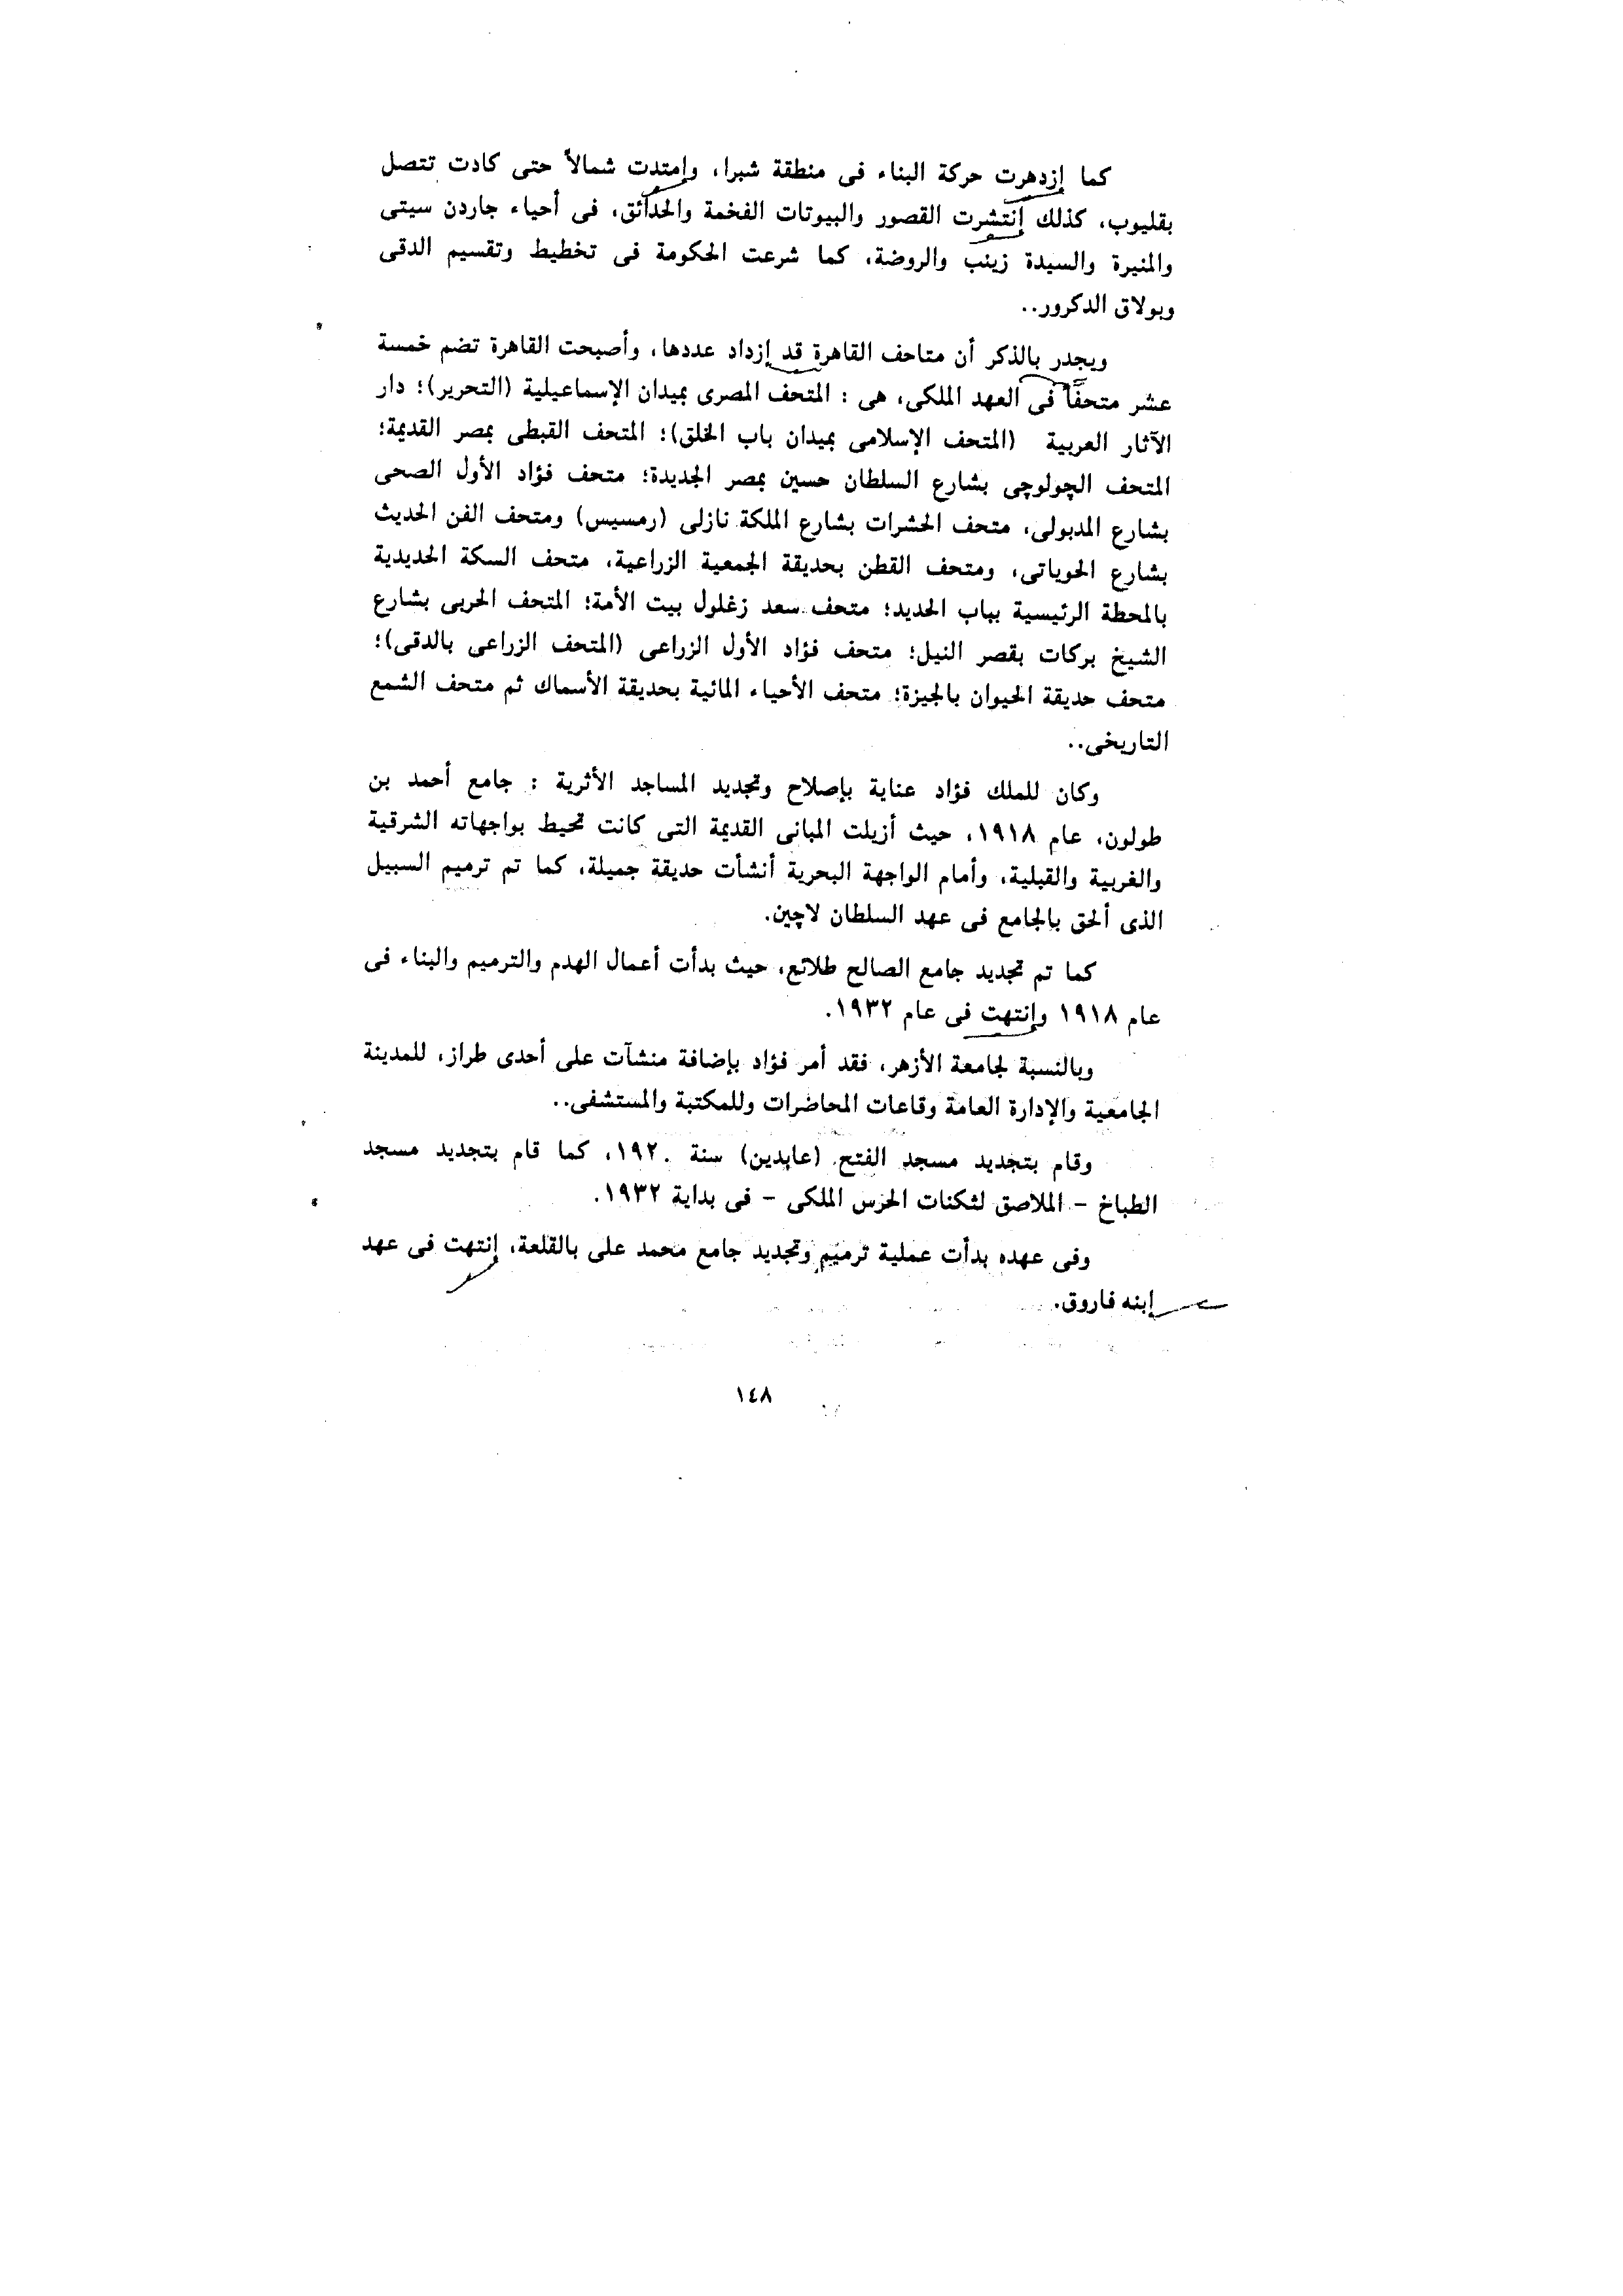 كما إزدهرت حركة البناء فى منطقة شبرا، وإمتدت شمالاً حتى كادت تتصل
بقليوب، كذلك إنتشرت القصور والبيوتات الفخمة والحدائق، فى أحياء جاردن سيتى
والمنيرة والسيدة زينب والروضة، كما شرعت الحكومة فى تخطيط وتقسيم الدقى
وبولاق الدكرور..
ويجدر بالذكر أن متاحف القاهرة قد إزداد عددها، وأصبحت القاهرة تضم خمسة
عشر متحفًا فى العهد الملكى، هى : المتحف المصرى بميدان الإسماعيلية (التحرير)؛ دار
الآثار العربية (المتحف الإسلامى بميدان باب الخلق)؛ المتحف القبطى بمصر القديمة؛
المتحف الچولوچى بشارع السلطان حسين بمصر الجديدة؛ متحف فؤاد الأول الصحى
بشارع المدبولى، متحف الحشرات بشارع الملكة نازلى (رمسيس) ومتحف الفن الحديث
بشارع الحوياتى، ومتحف القطن بحديقة الجمعية الزراعية، متحف السكة الحديدية
بالمحطة الرئيسية بباب الحديد؛ متحف سعد زغلول بيت الأمة؛ المتحف الحربى بشارع
الشيخ بركات بقصر النيل؛ متحف فؤاد الأول الزراعى (المتحف الزراعى بالدقى)؛
متحف حديقة الحيوان بالجيزة؛ متحف الأحياء المائية بحديقة الأسماك ثم متحف الشمع
التاريخى..
وكان للملك فؤاد عناية بإصلاح وتجديد المساجد الأثرية : جامع أحمد بن
طولون، عام ١٩١٨، حيث أزيلت المبانى القديمة التى كانت تحيط بواجهاته الشرقية
والغربية والقبلية، وأمام الواجهة البحرية أنشأت حديقة جميلة، كما تم ترميم السبيل
الذى ألحق بالجامع فى عهد السلطان لاچين.
كما تم تجديد جامع الصالح طلائع، حيث بدأت أعمال الهدم والترميم والبناء فى
عام ١٩١٨ وإنتهت فى عام ١٩٣٢.
وبالنسبة لجامعة الأزهر، فقد أمر فؤاد بإضافة منشآت على أحدى طراز، للمدينة
الجامعية والإدارة العامة وقاعات المحاضرات وللمكتبة والمستشفى..
وقام بتجديد مسجد الفتح (عابدين) سنة ١٩٢٠، كما قام بتجديد مسجد
الطباخ - الملاصق لثكنات الحرس الملكى - فى بداية ١٩٣٢.
وفى عهده بدأت عملية ترميم وتجديد جامع محمد على بالقلعة، إنتهت فى عهد
إبنه فاروق.
١٤٨